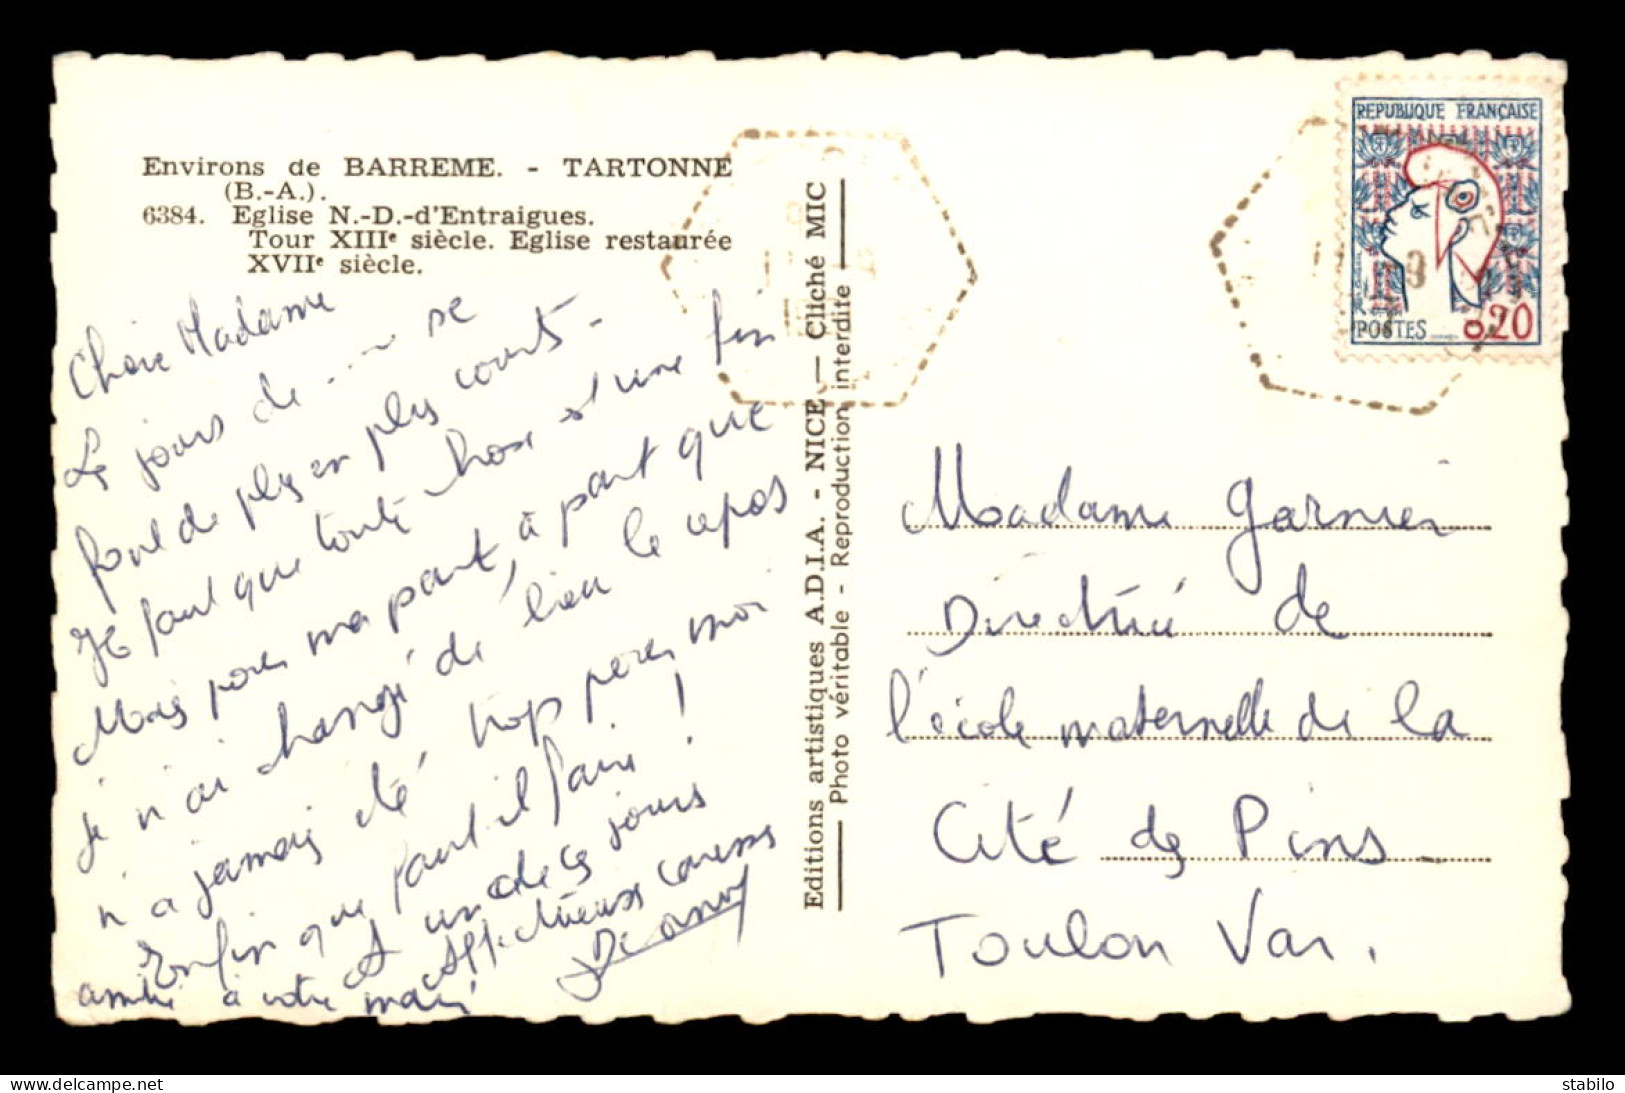 Environs de BARREME. - TARTONNE
(B.-A.).
6384. Eglise N.-D.-d'Entraigues.
Tour XIIIe siècle. Eglise restaurée
XVIIe siècle.
Chère Madame
Les jours de se
font de plus en plus courts -
Il faut que toute chose ait une fin
Mais pour ma part, à part que
je n'ai changé de lieu le repos
n'a jamais été trop pour moi
Enfin que faut-il faire !
A un de ces jours
Affectueuses caresses
amitié à votre mari
Editions artistiques A.D.I.A. - NICE — Cliché MIC
Photo véritable - Reproduction interdite
REPUBLIQUE FRANÇAISE
POSTES 0,20
Madame Garnier
Directrice de
l'école maternelle de la
Cité des Pins
Toulon Var.
delcampe.net
stabilo